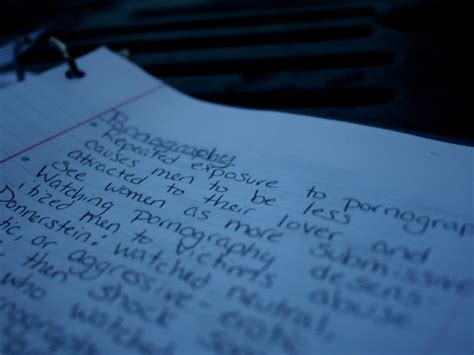 Pornography
• Repeated exposure to pornograp
causes men to be less
attracted to their lover and
see women as more submissive
• Watching pornography desens
itized men to victims abuse
Donnerstein: watched neutral,
tic, or aggressive-erotic
, then shock
who watched
rnography